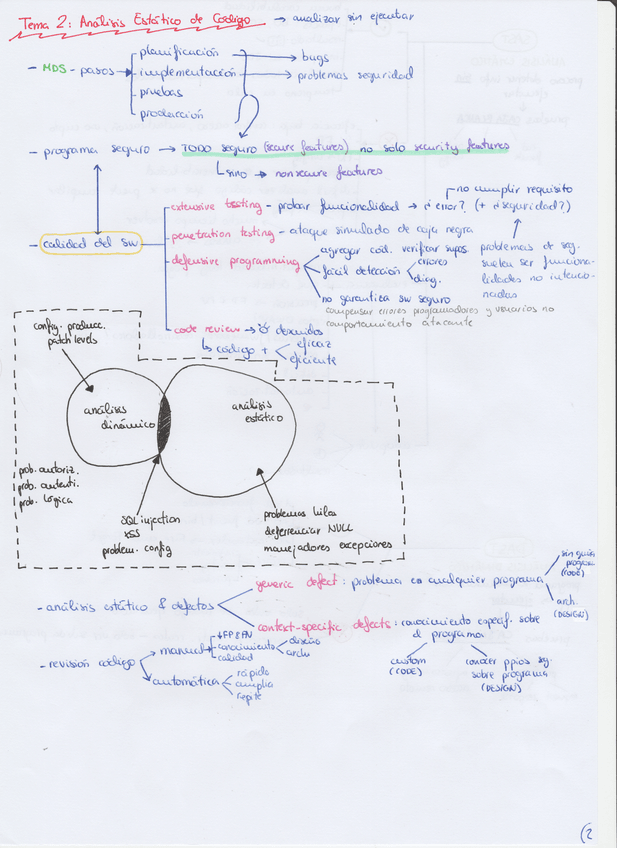 Tema 2: Análisis Estático de Código → analizar sin ejecutar
planificación → bugs
- MDS - pasos → implementación → problemas seguridad
pruebas
producción
- programa seguro → TODO seguro (secure features) no solo security features
sino → non secure features
no cumplir requisito
extensive testing - probar funcionalidad → ¿error? (+ ¿seguridad?)
- calidad del SW
penetration testing - ataque simulado de caja negra
defensive programming
agregar cód. verificar supos.
fácil detección
errores
diag.
no garantiza sw seguro
problemas de seg.
suelen ser funcionalidades no intencionadas
compensar errores programadores y usuarios no
comportamiento atacante
code review →
código +
eficaz
eficiente
config. produce.
patch levels
análisis
dinámico
análisis
estático
prob. autoriz.
prob. autenti.
prob. lógica
SQL injection
XSS
problem. config
problemas hilos
deferrenciar NULL
manejadores excepciones
- análisis estático & defectos
generic defect: problema en cualquier programa
sin guía
programa
(CODE)
arch.
(DESIGN)
context-specific defects: conocimiento específ. sobre
el programa
custom
(CODE)
conocer ppios seg.
sobre programa
(DESIGN)
- revisión código
manual
↓FP & FN
conocimiento
diseño
arch
calidad
automática
rápido
amplia
repite
(2